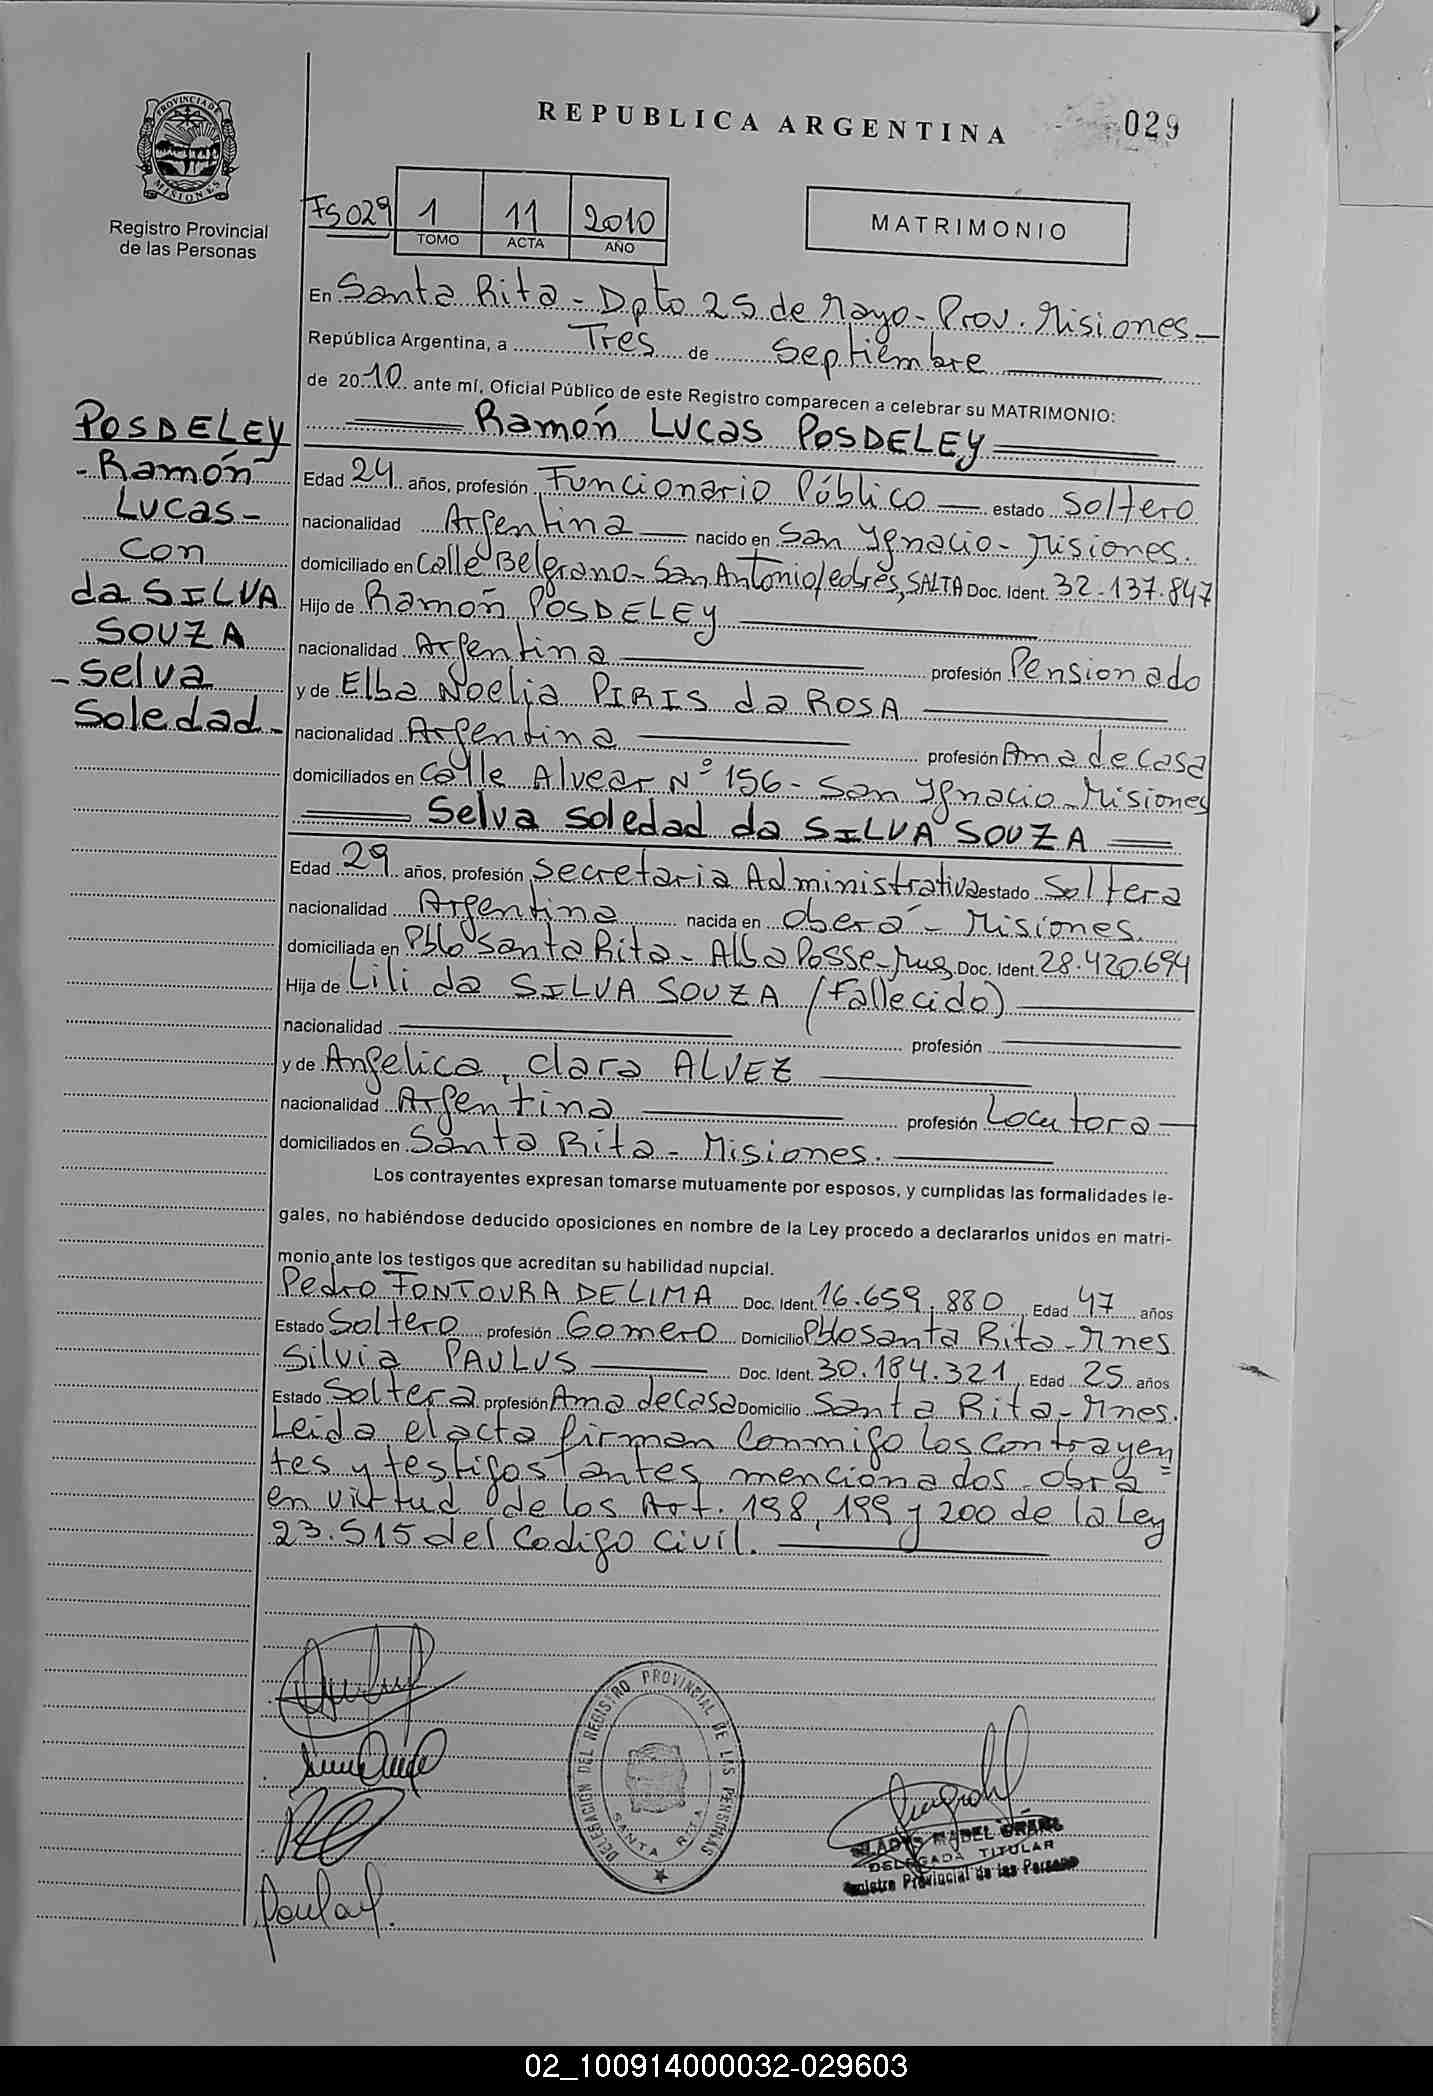 PROVINCIA DE
MISIONES
Registro Provincial
de las Personas
REPUBLICA ARGENTINA
029
Fs 029
1 11 2010
TOMO ACTA AÑO
MATRIMONIO
En Santa Rita - Dpto 25 de Mayo - Prov. Misiones -
República Argentina, a Tres de Septiembre
de 2010 ante mí, Oficial Público de este Registro comparecen a celebrar su MATRIMONIO:
POSDELEY
- Ramón
Lucas -
con
da SILVA
SOUZA
- Selva
Soledad -
Ramón Lucas POSDELEY
Edad 24 años, profesión Funcionario Público estado Soltero
nacionalidad Argentina nacido en San Ygnacio - Misiones.
domiciliado en Calle Belgrano - San Antonio/cobres, SALTA Doc. Ident. 32.137.847
Hijo de Ramón POSDELEY
nacionalidad Argentina profesión Pensionado
y de Elba Noelia PIRIS da ROSA
nacionalidad Argentina profesión Ama de Casa
domiciliados en Calle Alvear Nº 156 - San Ygnacio - Misiones
Selva Soledad da SILVA SOUZA
Edad 29 años, profesión Secretaria Administrativa estado Soltera
nacionalidad Argentina nacida en Oberá - Misiones.
domiciliada en Pblo Santa Rita - Alba Posse - Mnes Doc. Ident. 28.420.694
Hija de Lili da SILVA SOUZA (Fallecido)
nacionalidad profesión
y de Angelica, Clara ALVEZ
nacionalidad Argentina profesión Locutora
domiciliados en Santa Rita - Misiones.
Los contrayentes expresan tomarse mutuamente por esposos, y cumplidas las formalidades le-
gales, no habiéndose deducido oposiciones en nombre de la Ley procedo a declararlos unidos en matri-
monio ante los testigos que acreditan su habilidad nupcial.
Pedro FONTOURA DE LIMA Doc. Ident. 16.659.880 Edad 47 años
Estado Soltero profesión Gomero Domicilio Pblo Santa Rita - Mnes
Silvia PAULUS Doc. Ident. 30.184.321 Edad 25 años
Estado Soltera profesión Ama de Casa Domicilio Santa Rita - Mnes.
Leida el acta firman conmigo los contrayen
tes y testigos antes mencionados - obra =
en virtud de los Art. 198, 199 y 200 de la Ley
23.515 del Codigo Civil.
DELEGACION DEL REGISTRO PROVINCIAL DE LAS PERSONAS
SANTA RITA
GLADYS MABEL
DELEGADA TITULAR
Provincial de las Persona
02_100914000032-029603